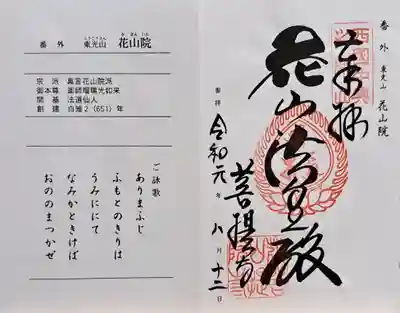 番外 東光山 花山院
とうこうざん かざんいん
宗派 真言花山院派
御本尊 薬師瑠璃光如来
開基 法道仙人
創建 白雉2(651)年
ご詠歌
ありまふじ
ふもとのきりは
うみににて
なみかときけば
おののまつかぜ
番外 東光山 花山院
奉拝
花山法皇殿
菩提寺
参拝 令和元年八月十二日